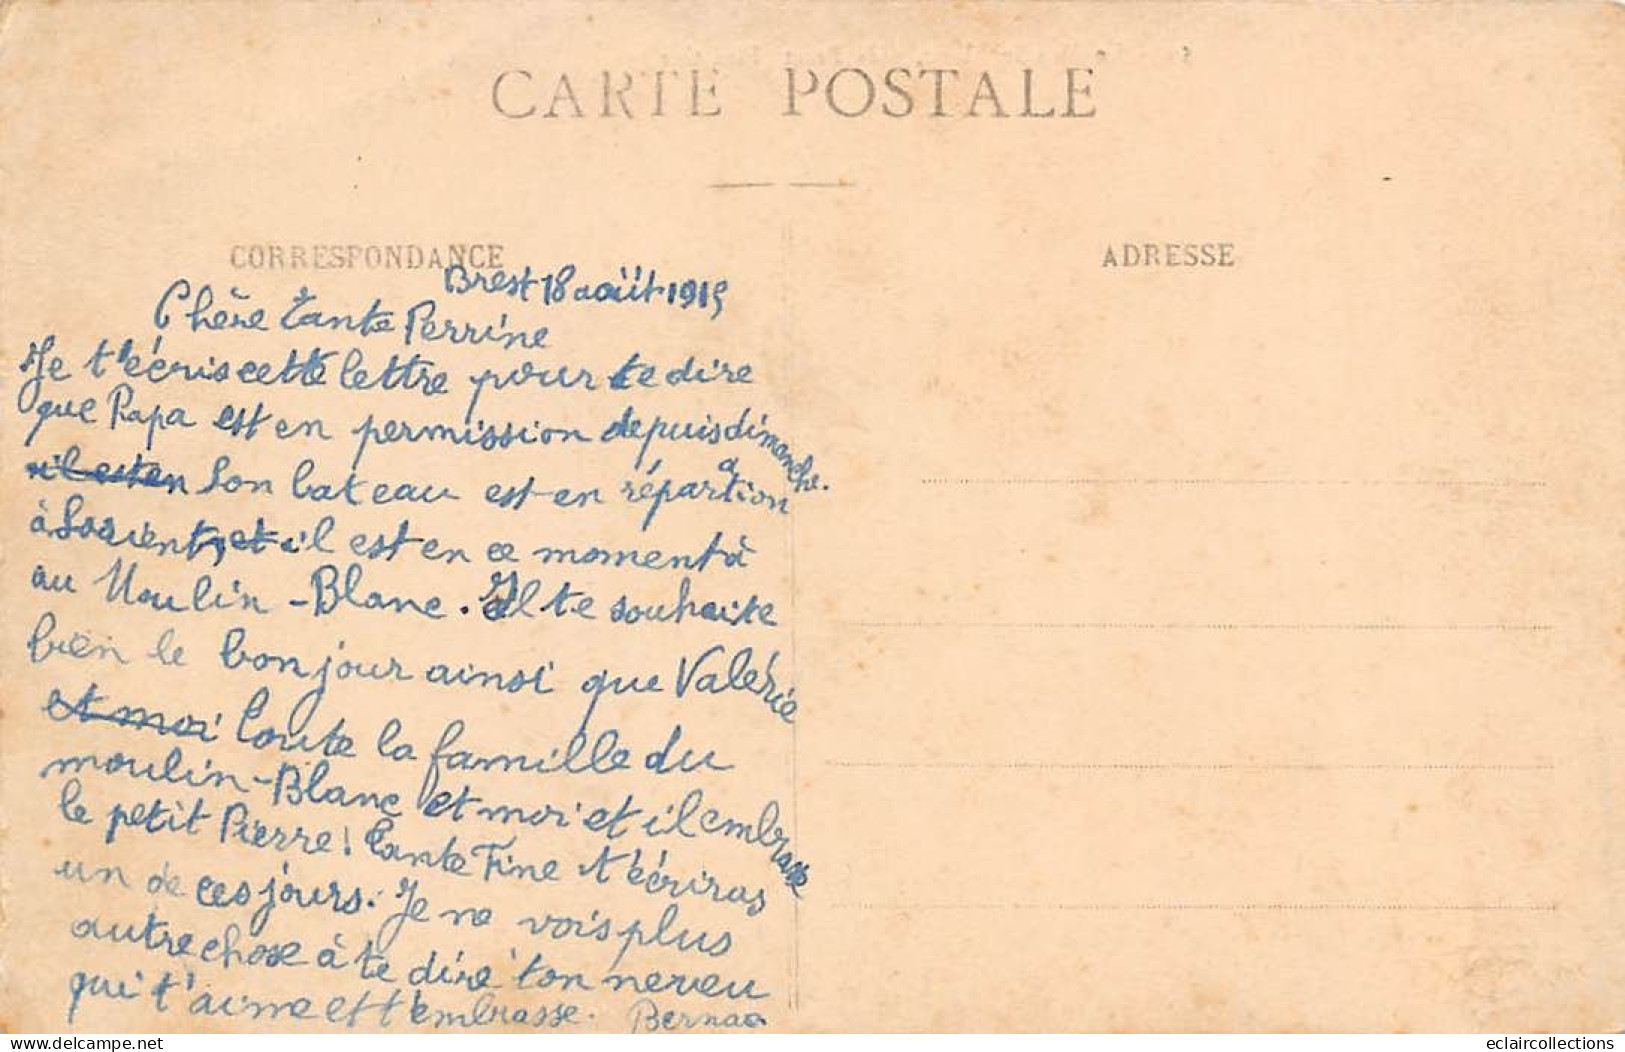 CARTE POSTALE
CORRESPONDANCE
ADRESSE
Brest 18 août 1915
Chère Tante Perrine
Je t'écris cette lettre pour te dire
que Papa est en permission depuis dimanche.
il est en Son bateau est en réparation
à Lorient, et il est en ce moment à
au Moulin-Blanc. Il te souhaite
bien le bonjour ainsi que Valérie
et moi Toute la famille du
moulin-Blanc et moi et il embrasse
le petit Pierre! Tante Fine t'écriras
un de ces jours. Je ne vois plus
autre chose à te dire ton neveu
qui t'aime et t'embrasse.
eclaircollections